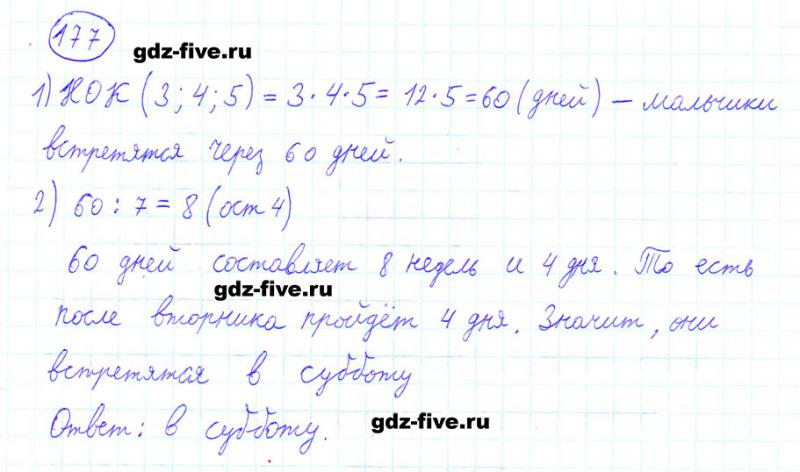 177
gdz-five.ru
1) НОК (3; 4; 5) = 3 · 4 · 5 = 12 · 5 = 60 (дней) – мальчики
встретятся через 60 дней.
2) 60 : 7 = 8 (ост 4)
60 дней составляет 8 недель и 4 дня. То есть
gdz-five.ru
после вторника пройдёт 4 дня. Значит, они
встретятся в субботу
Ответ: в субботу.
gdz-five.ru